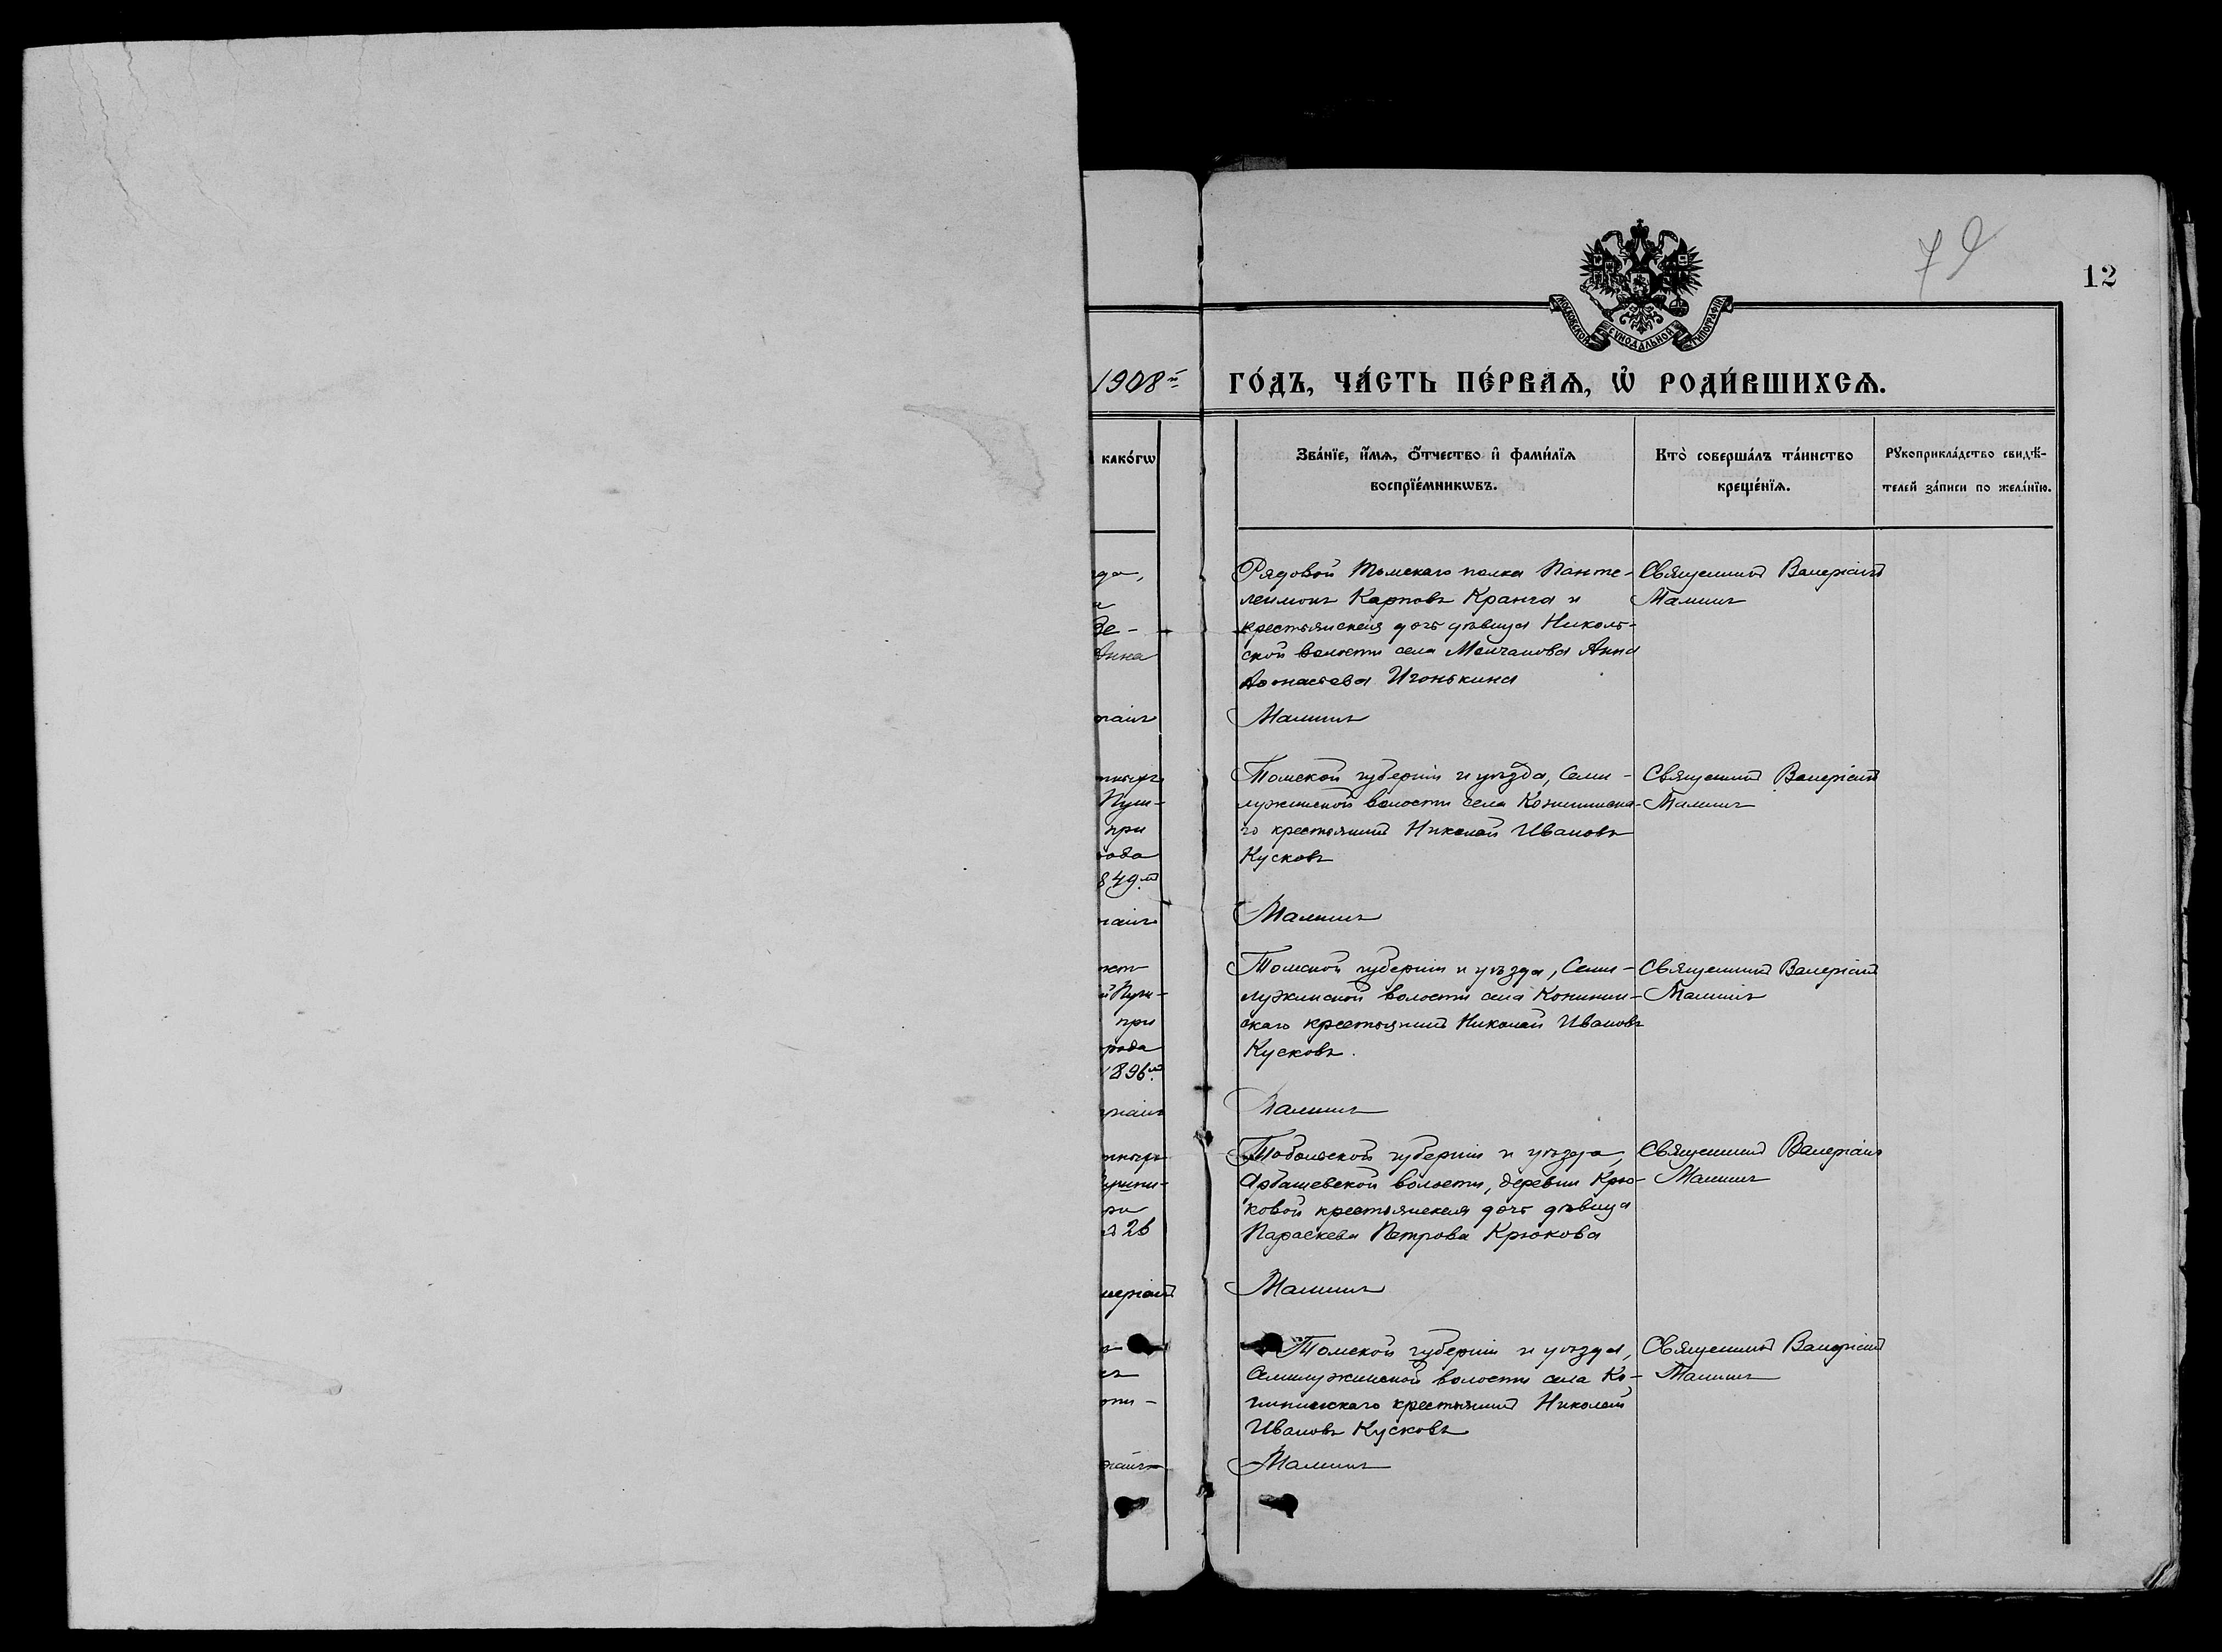 79
12
МОСКОВСКОЙ СѴНОДАЛЬНОЙ ТИПОГРАФІИ
1908й го́дъ, ча́сть пе́рваѧ, ѡ҆ роди́вшихсѧ.
како́гѡ
Зва́нїе, и҆́мѧ, ѻ҆́тчество и҆ фами́лїѧ
воспрїе́мникѡвъ.
Кто̀ соверша́лъ та́инство
креще́нїѧ.
Рꙋкоприкла́дство свидѣ́-
телей за́писи по жела́нїю.
Рядовой Томскаго полка Панте-
леимонъ Карповъ Кранга и
крестьянская дочь дѣвица Николь-
ской волости села Молчанова Анна
Афонасьева Игонькина
Священникъ Валеріанъ
Малинъ
Малинъ
Томской губерніи и уѣзда, Семи-
лужинской волости села Конининска-
го крестьянинъ Николай Ивановъ
Кусковъ
Священникъ Валеріанъ
Малинъ
849й
Малинъ
Томской губерніи и уѣзда, Семи-
лужинской волости села Конинин-
скаго крестьянинъ Николай Ивановъ
Кусковъ.
Священникъ Валеріанъ
Малинъ
при
1896й
Малинъ
Тобольской губерніи и уѣзда,
Арбашевской волости, деревни Крю-
ковой крестьянская дочь дѣвица
Параскева Петрова Крюкова
Священникъ Валеріанъ
Малинъ
26
Малинъ
Томской губерніи и уѣзда,
Семилужинской волости села Ко-
нининскаго крестьянинъ Николай
Ивановъ Кусковъ
Священникъ Валеріанъ
Малинъ
Малинъ